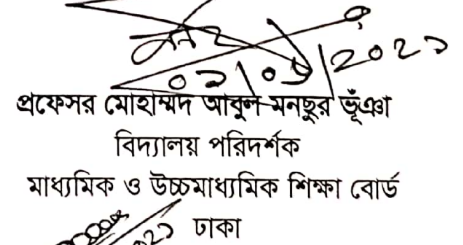 প্রফেসর মোহাম্মদ আবুল মনছুর ভূঁঞা
বিদ্যালয় পরিদর্শক
মাধ্যমিক ও উচ্চমাধ্যমিক শিক্ষা বোর্ড
ঢাকা